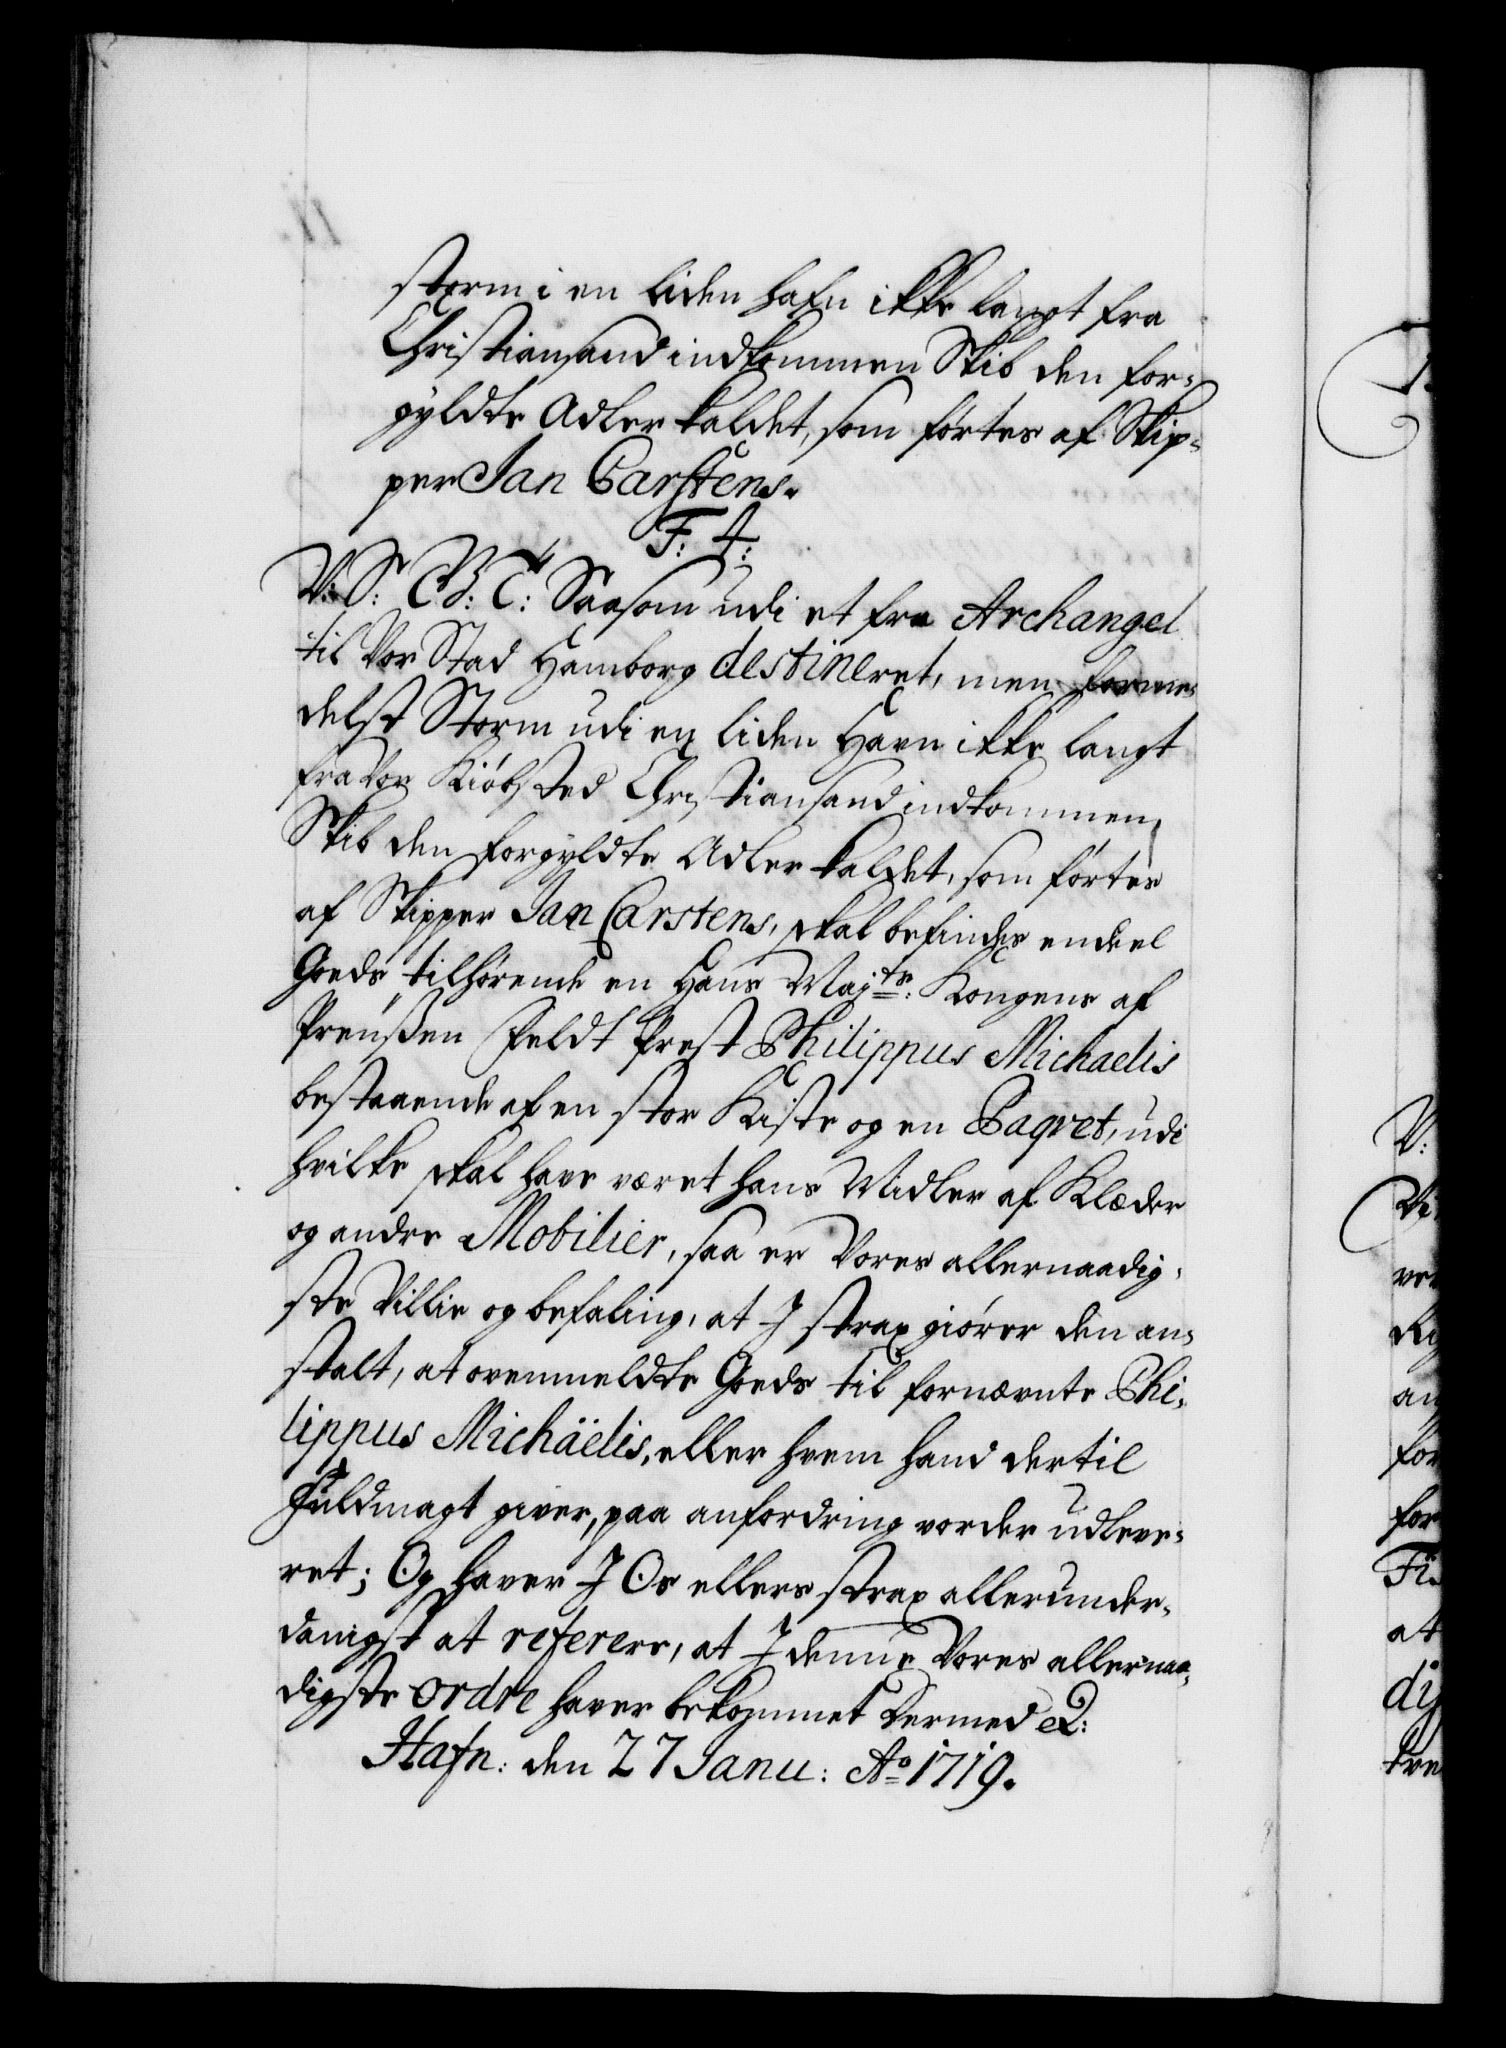 storm i en liden hafn ikke langt fra
Christiansand indkommen Skib den for-
gyldte Adler kaldet, som førtes af Skip-
per Jan Carstens.
F: 4:
V: S: G: B: T: Saasom udi et fra Archangel
til Vor Stad Hamborg destineret, men forme-
delst Storm udi en liden Havn ikke langt
fra Vor Kiøbsted Christiansand indkommen,
Skib den forgyldte Adler kaldet, som førtes
af Skipper Jan Carstens, skal befindes endeel
Goeds tilhørende en Hans Maj:ts: Kongens af
Preussen Feldt Prest Philippus Michaelis
bestaaende af en stor Kiste og en Paqvet, udi
hvilke skal have været hans Midler af Klæder
og andre Mobilier, saa er Vores allernaadig-
ste Villie og befaling, at I strax giører den an-
stalt, at ovenmeldte Goeds til fornævnte Phi-
lippus Michäelis, eller hvem hand dertil
Fuldmagt giver, paa anfordring vorder udleve-
ret; Og haver I Os ellers strax allerunder-
danigst at referere, at I denne Vores allernaa-
digste ordre haver bekommet Dermed &:
Hafn: den 27 Janu: Ao 1719.